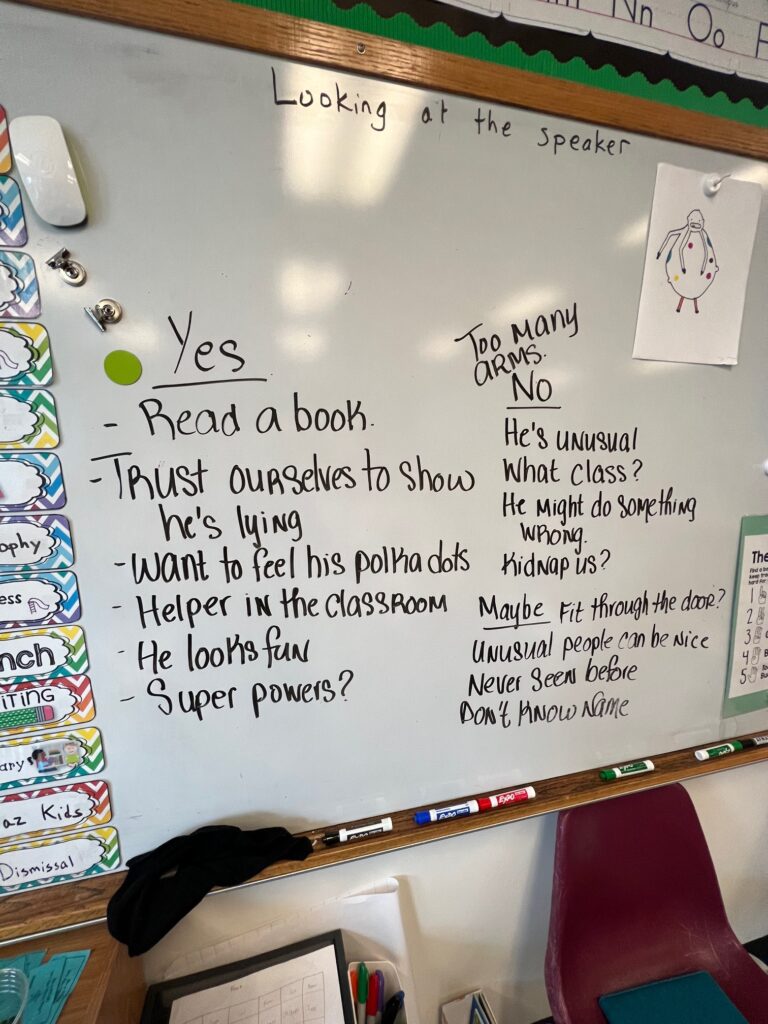 Nn Oo
Looking at the speaker
Yes
- Read a book.
- Trust ourselves to show
he's lying
- Want to feel his polka dots
- Helper in the classroom
- He looks fun
- Super powers?
Too many
arms.
No
He's unusual
What class?
He might do something
wrong.
Kidnap us?
Maybe Fit through the door?
Unusual people can be nice
Never seen before
Don't know name
ophy
ess
nch
iting
ary
az Kids
Dismissal
The
1
2
3
4
5
EXPO
EXPO